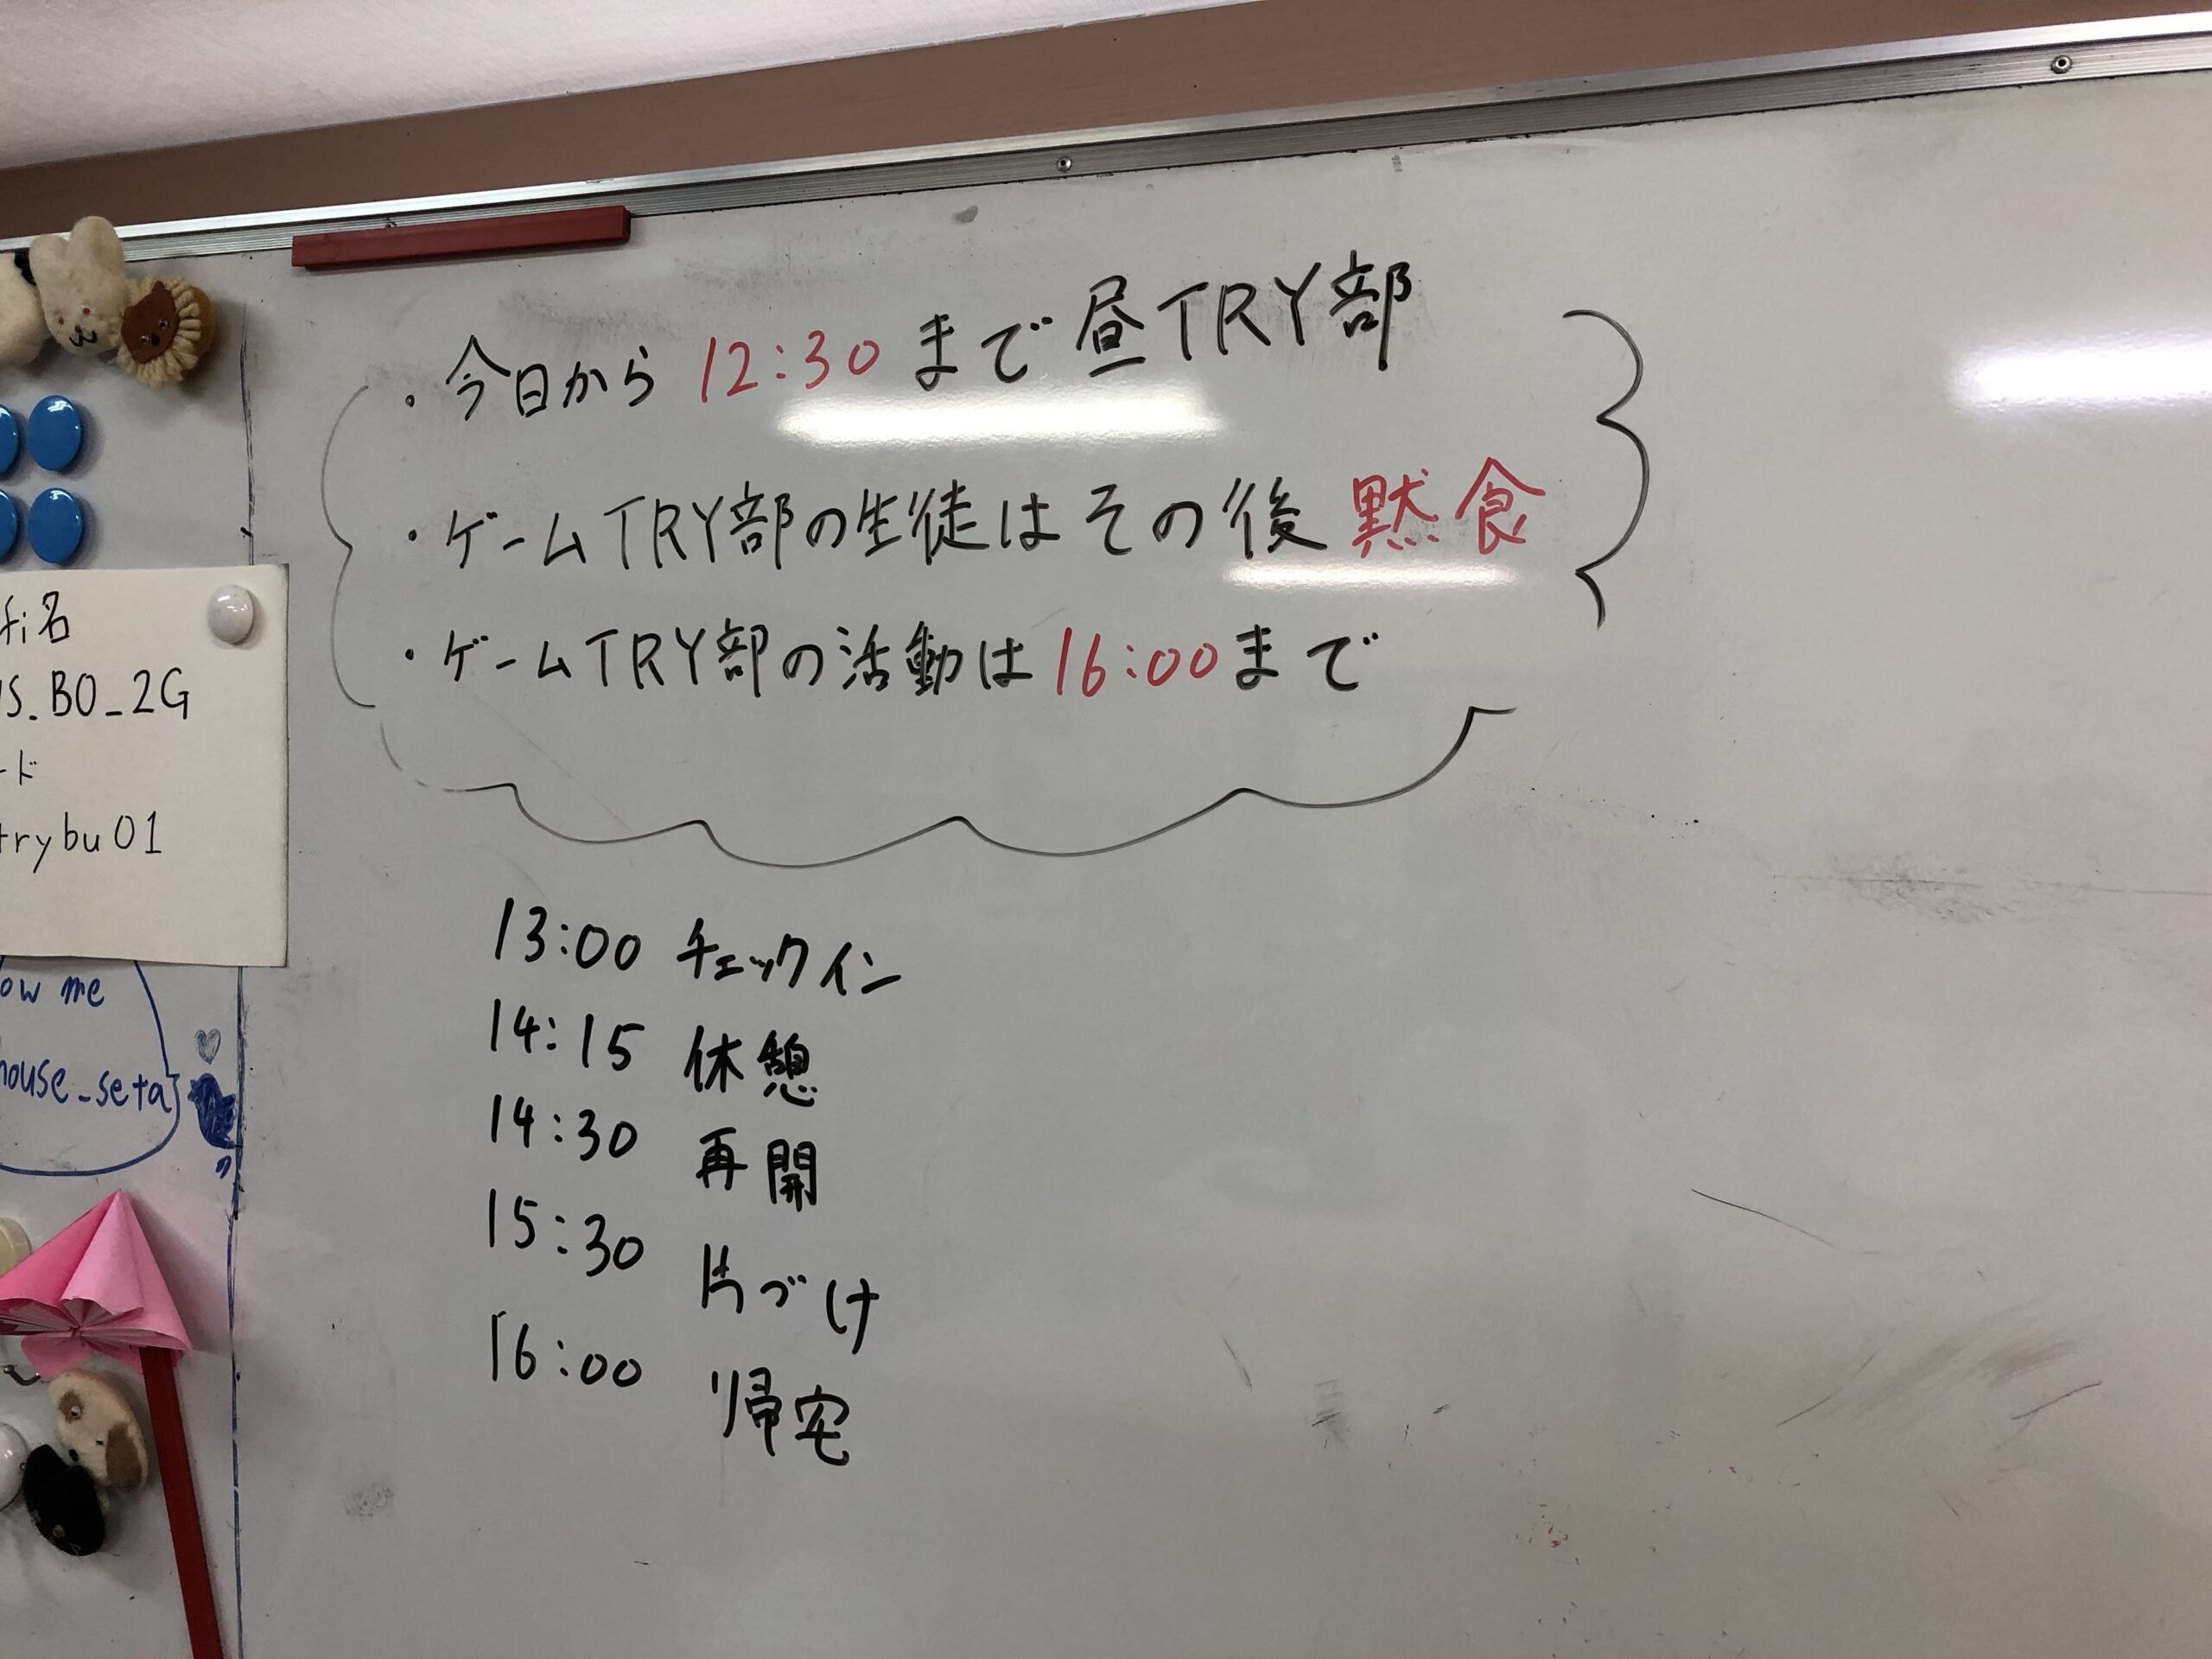 ・今日から 12:30 まで 昼TRY部
・ゲームTRY部の生徒は その後 黙食
・ゲームTRY部の活動は 16:00 まで
13:00 チェックイン
14:15 休憩
14:30 再開
15:30 片づけ
16:00 帰宅
fi名
S_B0_2G
ード
trybu01
ow me
house_seta